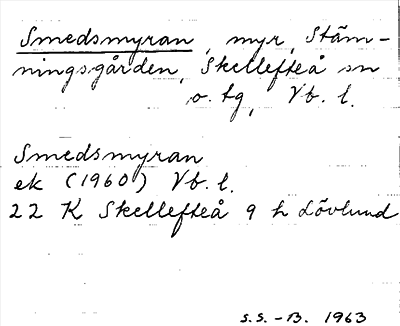 Smedsmyran, myr, Stäm-
ningsgården, Skellefteå sn
o. tg, Vb. l.
Smedsmyran
ek (1960) Vb. l.
22 K Skellefteå 9 h Lövlund
S.S. - B. 1963